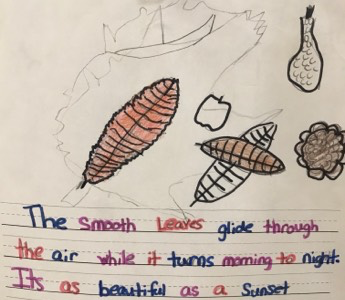 The Smooth Leaves glide through
the air while it turns morning to night.
Its as beautiful as a Sunset